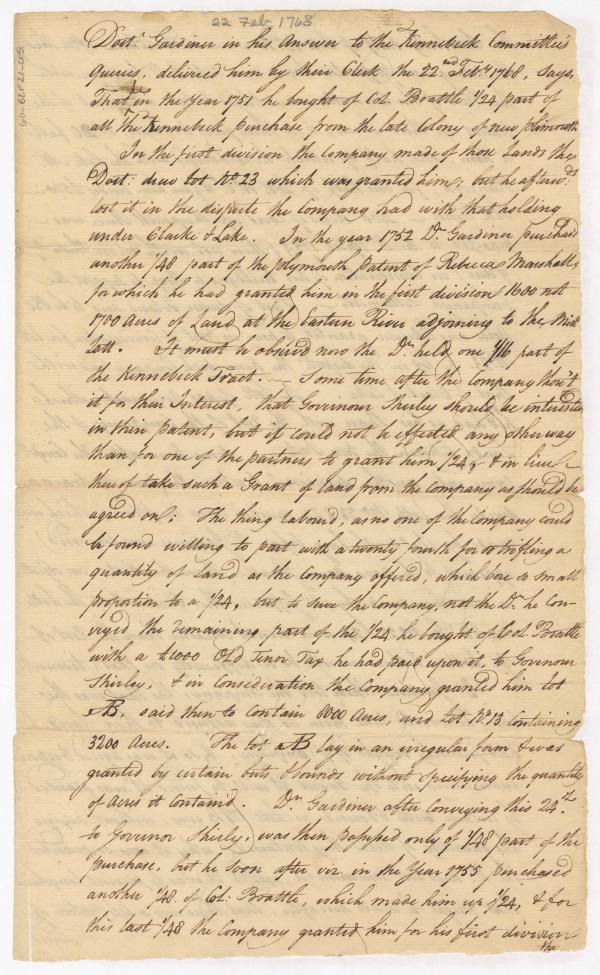 22 Feb 1768
60-6221-051
Doct.r Gardiner in his Answer to the Kennebeck Committee's
Queries, delivered him by their Clerk the 22.nd Feb.y 1768, says,
That in the Year 1751 he bought of Col. Brattle 1/24 part of
all the Kennebeck purchase from the late Colony of new plimouth
In the first division the Company made of those Lands the
Doct.r drew Lot No. 23 which was granted him; but he afterw.ds
lost it in the dispute the Company had with that holding
under Clarke & Lake. In the year 1752 Dr. Gardiner purchas'd
another 1/48 part of the plymouth Patent of Rebeca Marshall,
for which he had granted him in the first division 1600 not
1700 Acres of Land at the Eastern River adjoining to the Mill
Lott. It must be obsirv'd now the Dr. held one 1/16 part of
the Kennebeck Tract. — Some time after the Company tho't
it for their Interest, that Governour Shirley should be interested
in their patent, but it could not be effected any other way
than for one of the partners to grant him 1/24, & in lieu
thereof take such a Grant of land from the Company as should be
agreed on; The thing labourd, as no one of the Company could
be found willing to part with a twenty fourth for so trifling a
quantity of Land as the Company offered, which bore so small
proportion to a 1/24, but to serve the Company, not the Dr. he Con-
veyed the remaining part of the 1/24 he bought of Col. Brattle
with a £1000 Old Tenor Tax he had paid upon it, to Governour
Shirley, & in consideration the Company granted him lot
AB, said then to contain 8000 Acres, and Lot No. 13 Containing
3200 Acres. The lot AB lay in an irregular form & was
granted by certain buts & bounds without specifying the quantity
of Acres it contain'd. Dr. Gardiner after conveying this 24.th
to Governor Shirley, was then possess'd only of 1/48 part of the
purchase, but he soon after viz. in the Year 1755 purchased
another 1/48 of Col: Brattle, which made him up 1/24, & for
this last 1/48 the Company granted him for his first division
the